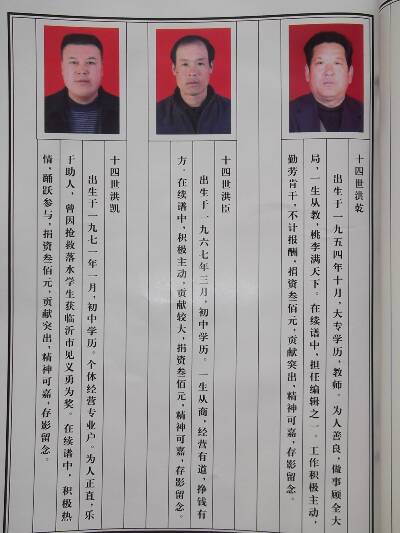 十四世洪乾
出生于一九五四年十月，大专学历，教师。为人善良，做事顾全大
局，一生从教，桃李满天下。在续谱中，担任编辑之一。工作积极主动，
勤劳肯干，不计报酬，捐资叁佰元，贡献突出，精神可嘉，存影留念。
十四世洪臣
出生于一九六七年三月，初中学历。一生从商，经营有道，挣钱有
方。在续谱中，积极主动，贡献较大，捐资叁佰元，精神可嘉，存影留念。
十四世洪凯
出生于一九七一年一月，初中学历。个体经营专业户。为人正直，乐
于助人，曾因抢救落水学生获临沂市见义勇为奖。在续谱中，积极热
情，踊跃参与，捐资叁佰元，贡献突出，精神可嘉，存影留念。